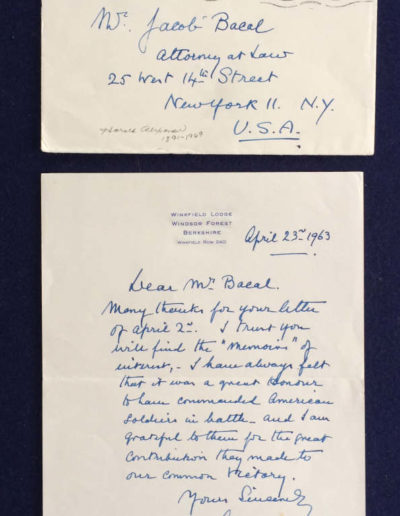 Mr. Jacob Bacal
Attorney at Law
25 West 14th Street
New York 11. N.Y.
U.S.A.
Harold Alexander
1891-1969
Winkfield Lodge
Windsor Forest
Berkshire
Winkfield Row 240
April 23rd 1963
Dear Mr. Bacal.
Many thanks for your letter
of April 2nd. I trust you
will find the "Memoirs" of
interest,- I have always felt
that it was a great honour
to have commanded American
soldiers in battle - and I am
grateful to them for the great
contribution they made to
our common victory.
Yours Sincerely